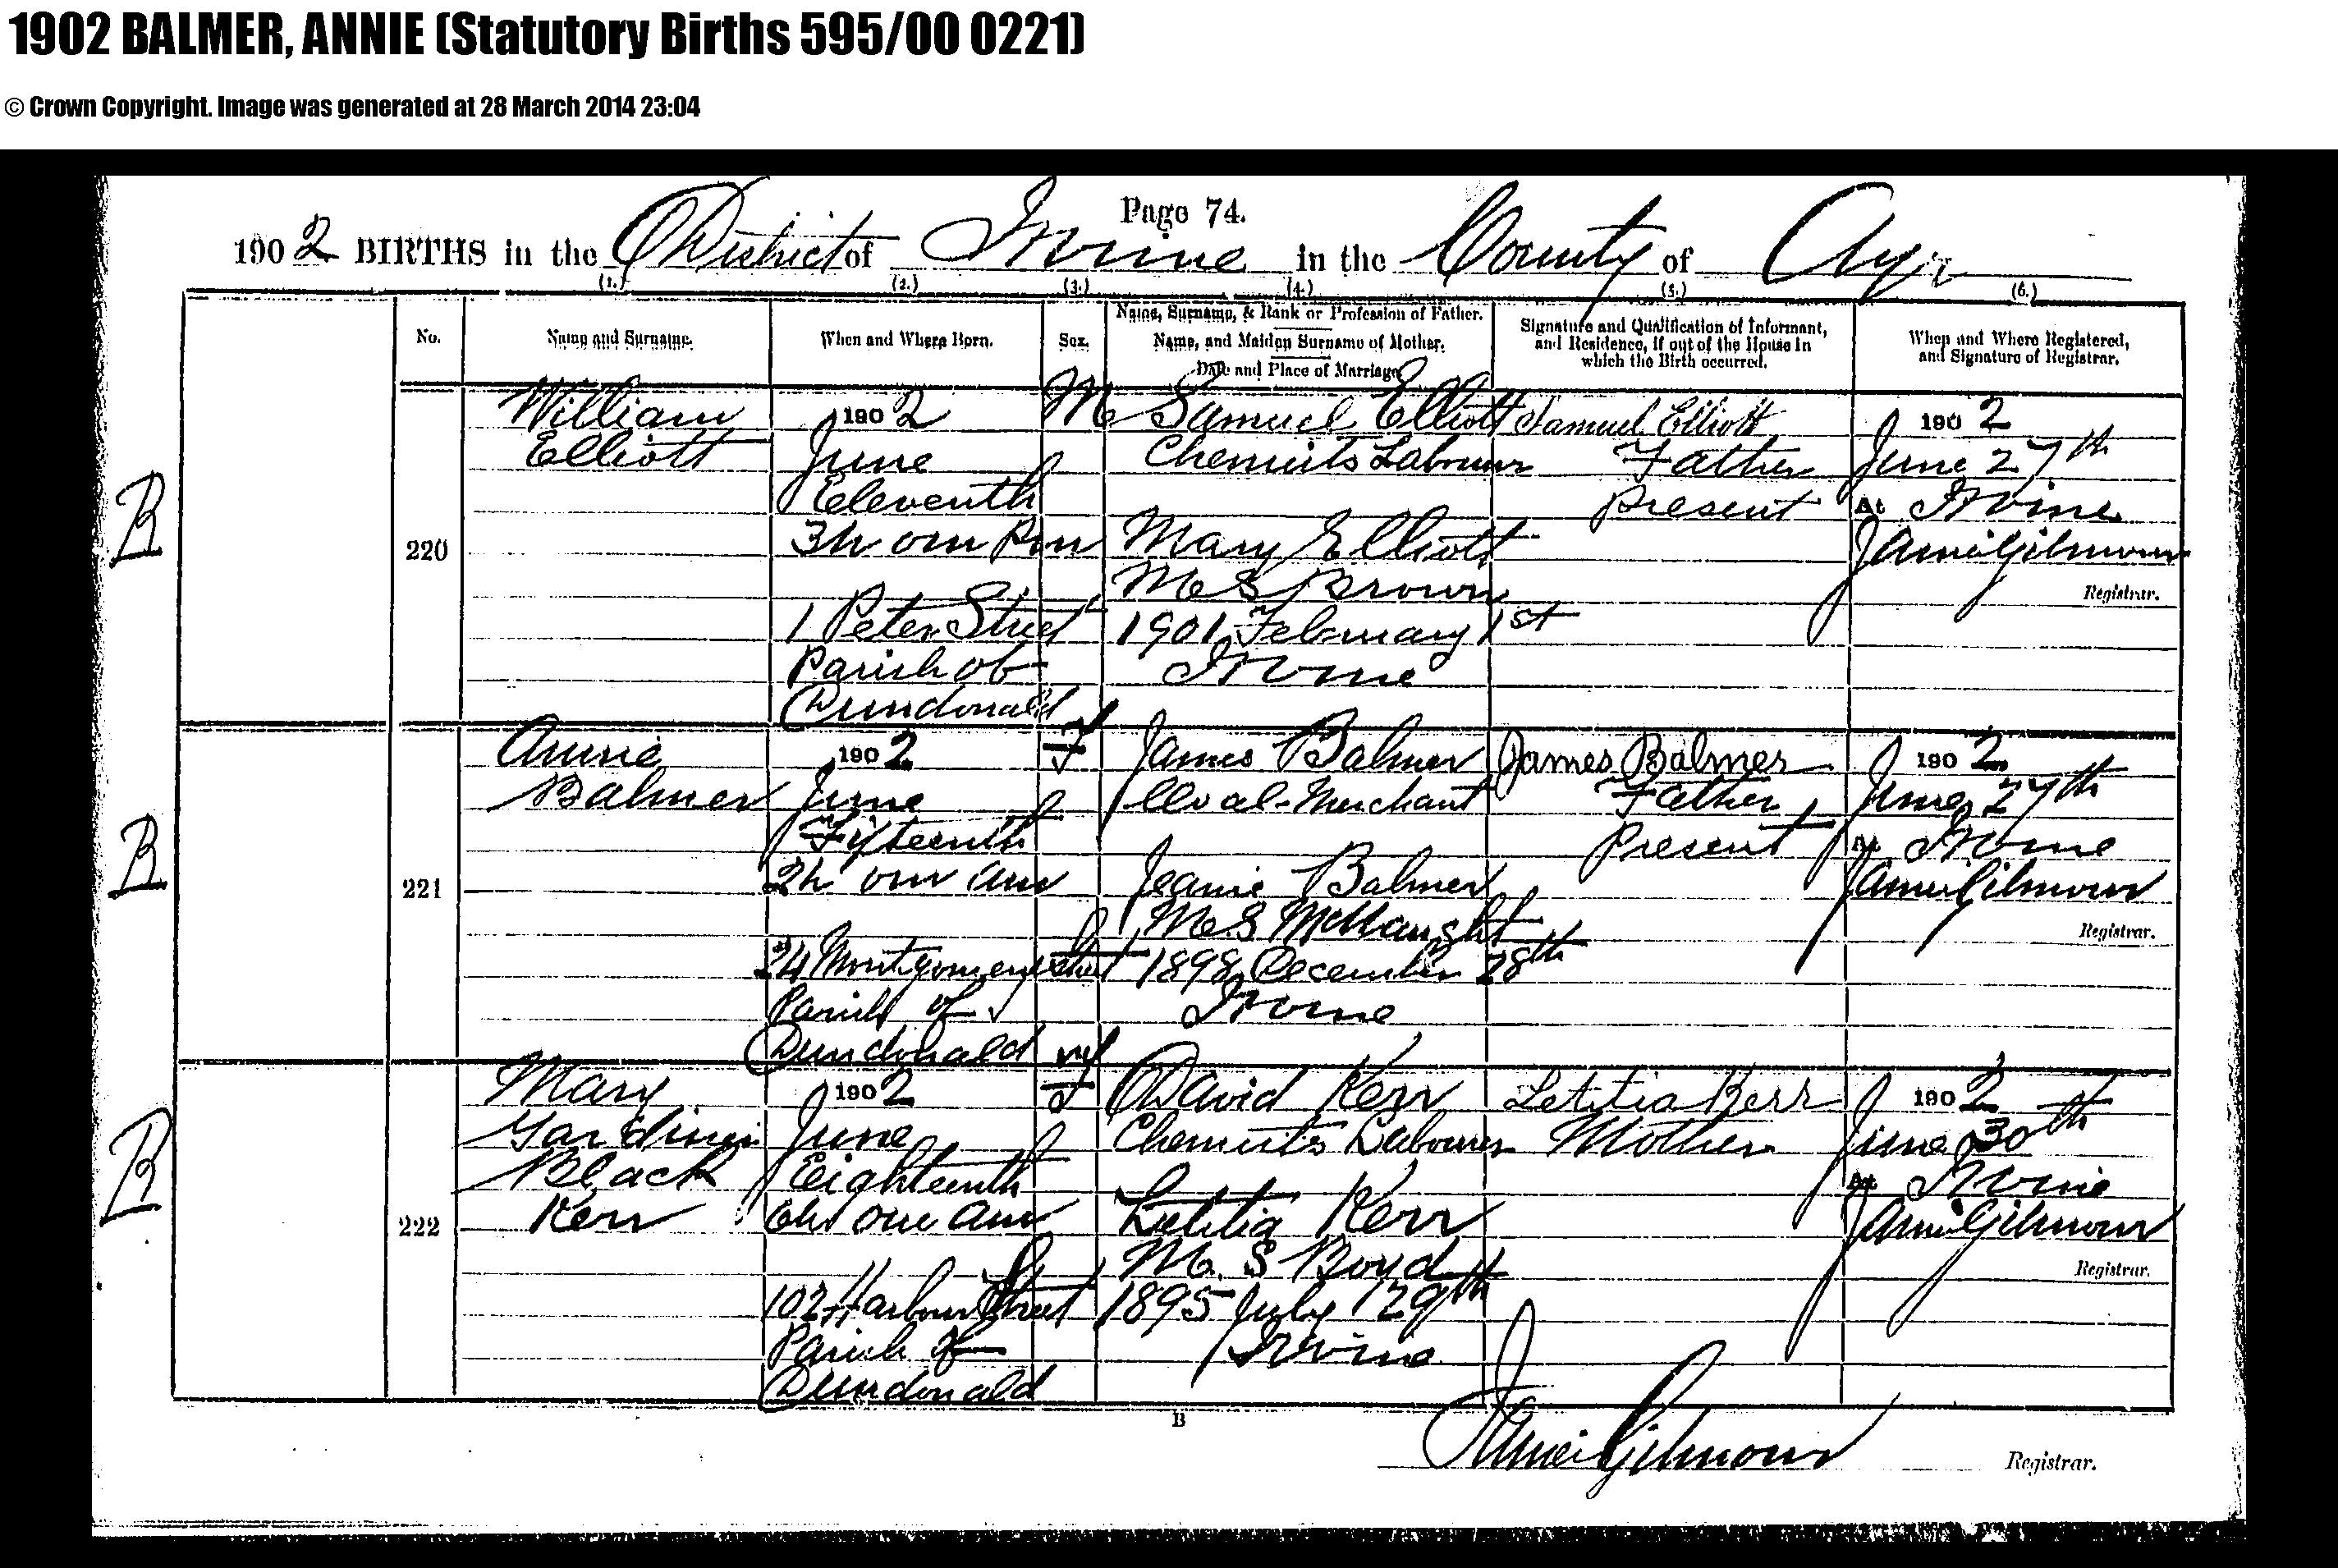 1902 BALMER, ANNIE (Statutory Births 595/00 0221)
© Crown Copyright. Image was generated at 28 March 2014 23:04
Page 74.
1902 BIRTHS in the District of Irvine in the County of Ayr
(1.) (2.) (3.) (4.) (5.) (6.)
No.
Name and Surname.
When and Where Born.
Sex.
Name, Surname, & Rank or Profession of Father.
Name, and Maiden Surname of Mother.
Date and Place of Marriage.
Signature and Qualification of Informant,
and Residence, if out of the House in
which the Birth occurred.
When and Where Registered,
and Signature of Registrar.
B
220
William
Elliott
1902
June
Eleventh
3h 0m PM
1 Peter Street
Parish of
Dundonald
M
Samuel Elliott
Chemists Labourer
Mary Elliott
M S Brown
1901 February 1st
Irvine
Samuel Elliott
Father
Present
1902
June 27th
At Irvine
James Gilmour
Registrar.
B
221
Annie
Balmer
1902
June
Fifteenth
2h 0m am
24 Montgomery Street
Parish of
Dundonald
F
James Balmer
Coal-Merchant
Jeanie Balmer
M S McNaught
1898 December 28th
Irvine
James Balmer
Father
Present
1902
June 27th
At Irvine
James Gilmour
Registrar.
B
222
Mary
Gardiner
Black
Kerr
1902
June
Eighteenth
am
102 Harbour Street
Parish of
Dundonald
F
David Kerr
Chemists Labourer
Letitia Kerr
M. S Boyd
1895 July 29th
Irvine
Letitia Kerr
Mother
1902
June 30th
At Irvine
James Gilmour
Registrar.
B
James Gilmour Registrar.